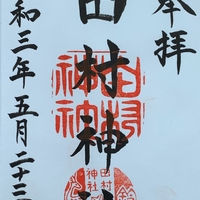 奉拝
田村神社
令和三年五月二十三
田村神社